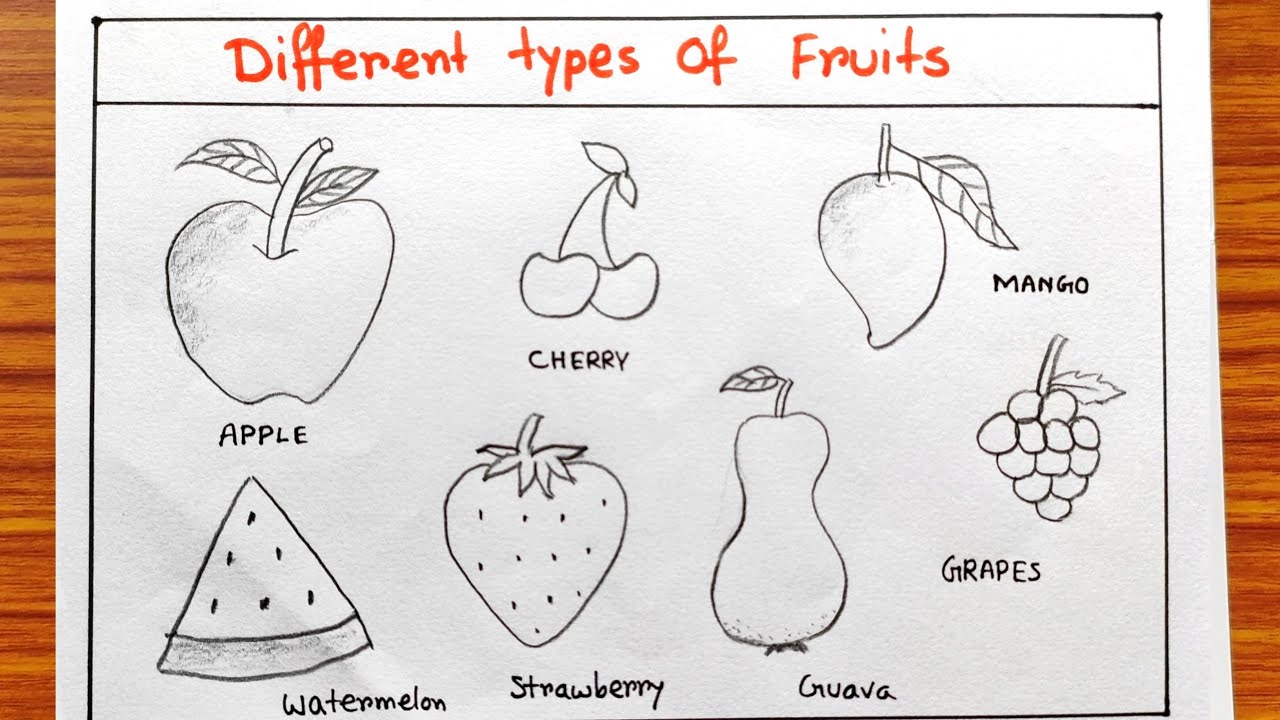 Different types of Fruits
APPLE
CHERRY
MANGO
GRAPES
Watermelon
Strawberry
Guava